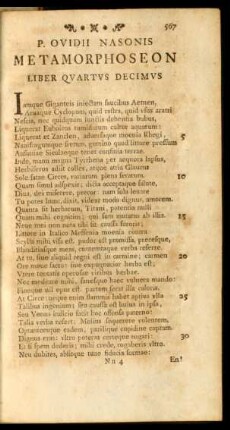 567
P. OVIDII NASONIS
METAMORPHOSEON
LIBER QVARTVS DECIMVS
Iamque Giganteis injectam faucibus Aetnen,
Arvaque Cyclopum, quid rastra, quid usus aratri
Nescia, nec quidquam junctis debentia bubus,
Liquerat Euboicus tumidarum cultor aquarum:
Liquerat et Zanclen, adversaque moenia Rhegi, 5
Navifragumque fretum, gemino quod litore pressum
Ausoniae Siculaeque tenet confinia terrae.
Inde, manu magna Tyrrhena per aequora lapsus,
Herbiferos adiit colles, atque atria Glaucus
Sole satae Circes, variarum plena ferarum. 10
Quam simul adspexit; dicta acceptaque salute,
Diva, dei miserere, precor: nam sola levare
Tu potes hunc, dixit, videar modo dignus, amorem.
Quanta sit herbarum, Titani, potentia nulli
Quam mihi cognitius; qui sum mutatus ab illis. 15
Neve mei non nota tibi sit causa furoris;
Litore in Italico Messenia moenia contra
Scylla mihi visa est. pudor est promissa, precesque,
Blanditiasque meas, contemtaque verba referre.
At tu, sive aliquid regni est in carmine; carmen 20
Ore move sacro: sive expugnacior herba est;
Utere tentatis operosae viribus herbae.
Nec medeare mihi, sanesque haec vulnera mando:
Fineque nil opus est. partem ferat illa caloris.
At Circe (neque enim flammis habet aptius ulla 25
Talibus ingenium; seu causa est hujus in ipsa,
Seu Venus indicio facit hoc offensa paterno)
Talia verba refert: Melius sequerere volentem,
Optantemque eadem, parilique cupidine captam.
Dignus eras: ultro poteras certeque rogari: 30
Et si spem dederis; mihi crede, rogaberis ultro.
Neu dubites, absitque tuae fiducia formae:
Nn 4 En!